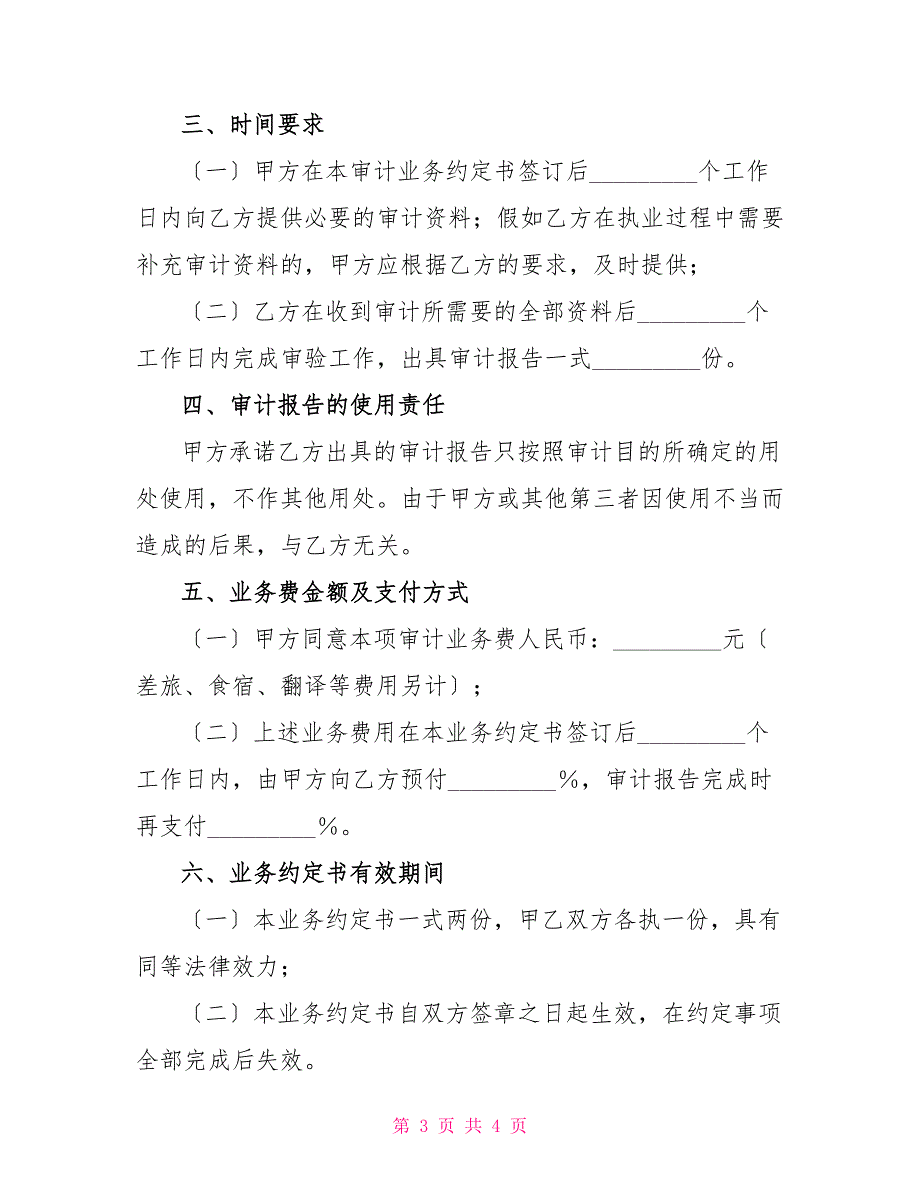 三、时间要求
〔一〕甲方在本审计业务约定书签订后_________个工作
日内向乙方提供必要的审计资料；假如乙方在执业过程中需要
补充审计资料的，甲方应根据乙方的要求，及时提供；
〔二〕乙方在收到审计所需要的全部资料后_________个
工作日内完成审验工作，出具审计报告一式_________份。
四、审计报告的使用责任
甲方承诺乙方出具的审计报告只按照审计目的所确定的用
处使用，不作其他用处。由于甲方或其他第三者因使用不当而
造成的后果，与乙方无关。
五、业务费金额及支付方式
〔一〕甲方同意本项审计业务费人民币：_________元〔
差旅、食宿、翻译等费用另计〕；
〔二〕上述业务费用在本业务约定书签订后_________个
工作日内，由甲方向乙方预付_________％，审计报告完成时
再支付_________％。
六、业务约定书有效期间
〔一〕本业务约定书一式两份，甲乙双方各执一份，具有
同等法律效力；
〔二〕本业务约定书自双方签章之日起生效，在约定事项
全部完成后失效。
第 3 页 共 4 页